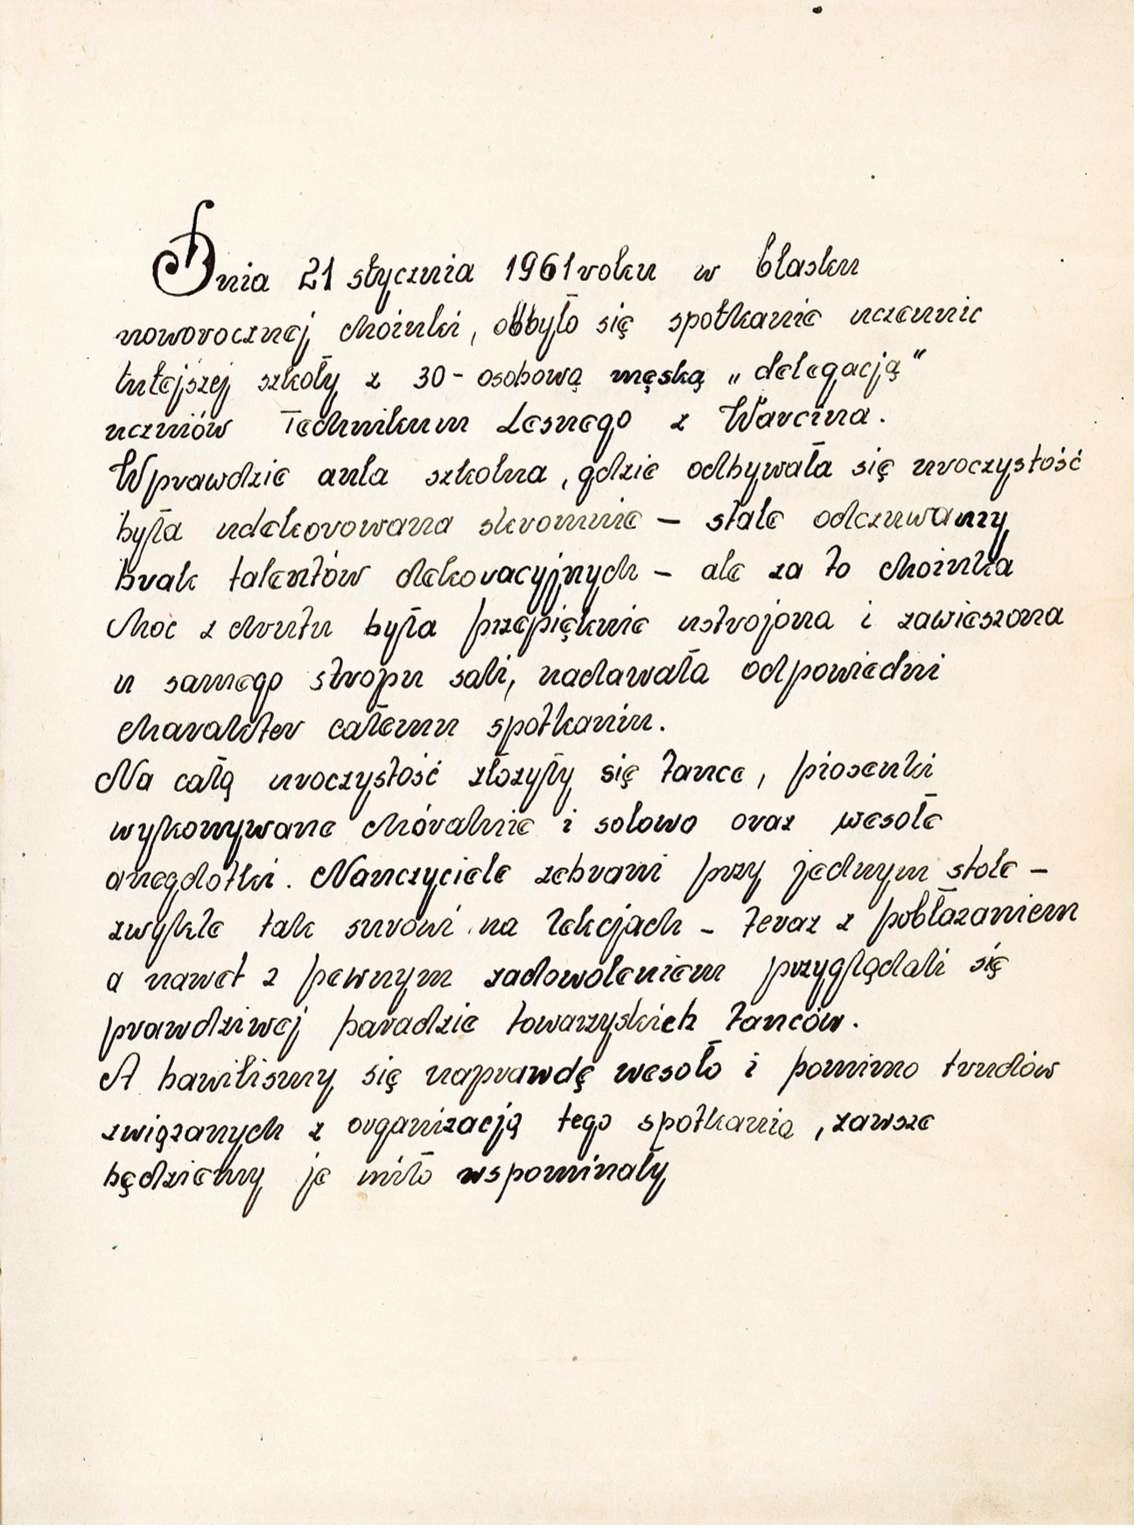 Dnia 21 stycznia 1961 roku w blasku
noworocznej choinki, odbyło się spotkanie uczennic
tutejszej szkoły z 30-osobową męską „delegacją"
uczniów Technikum Lesnego z Warcina.
Wprawdzie aula szkolna, gdzie odbywała się uroczystość
była udekorowana skromnie – stale odczuwamy
brak talentów dekoracyjnych – ale za to choinka
choć z drutu była przepięknie ustrojona i zawieszona
u samego stropu sali, nadawała odpowiedni
charakter całemu spotkaniu.
Na całą uroczystość złożyły się tance, piosenki
wykonywane chóralnie i solowo oraz wesołe
anegdotki. Nauczyciele zebrani przy jednym stole –
zwykle tak surowi na lekcjach – teraz z pobłażaniem
a nawet z pewnym zadowoleniem przyglądali się
prawdziwej paradzie towarzyskich tanców.
A bawiliśmy się naprawdę wesoło i pomimo trudów
związanych z organizacją tego spotkania, zawsze
będziemy je miło wspominały